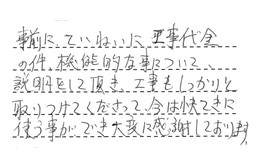 事前に、ていねいに工事代金
の件、機能的な事について
説明をして頂き、工事もしっかりと
取りつけてくださって、今は快てきに
使う事ができ大変に感謝しております